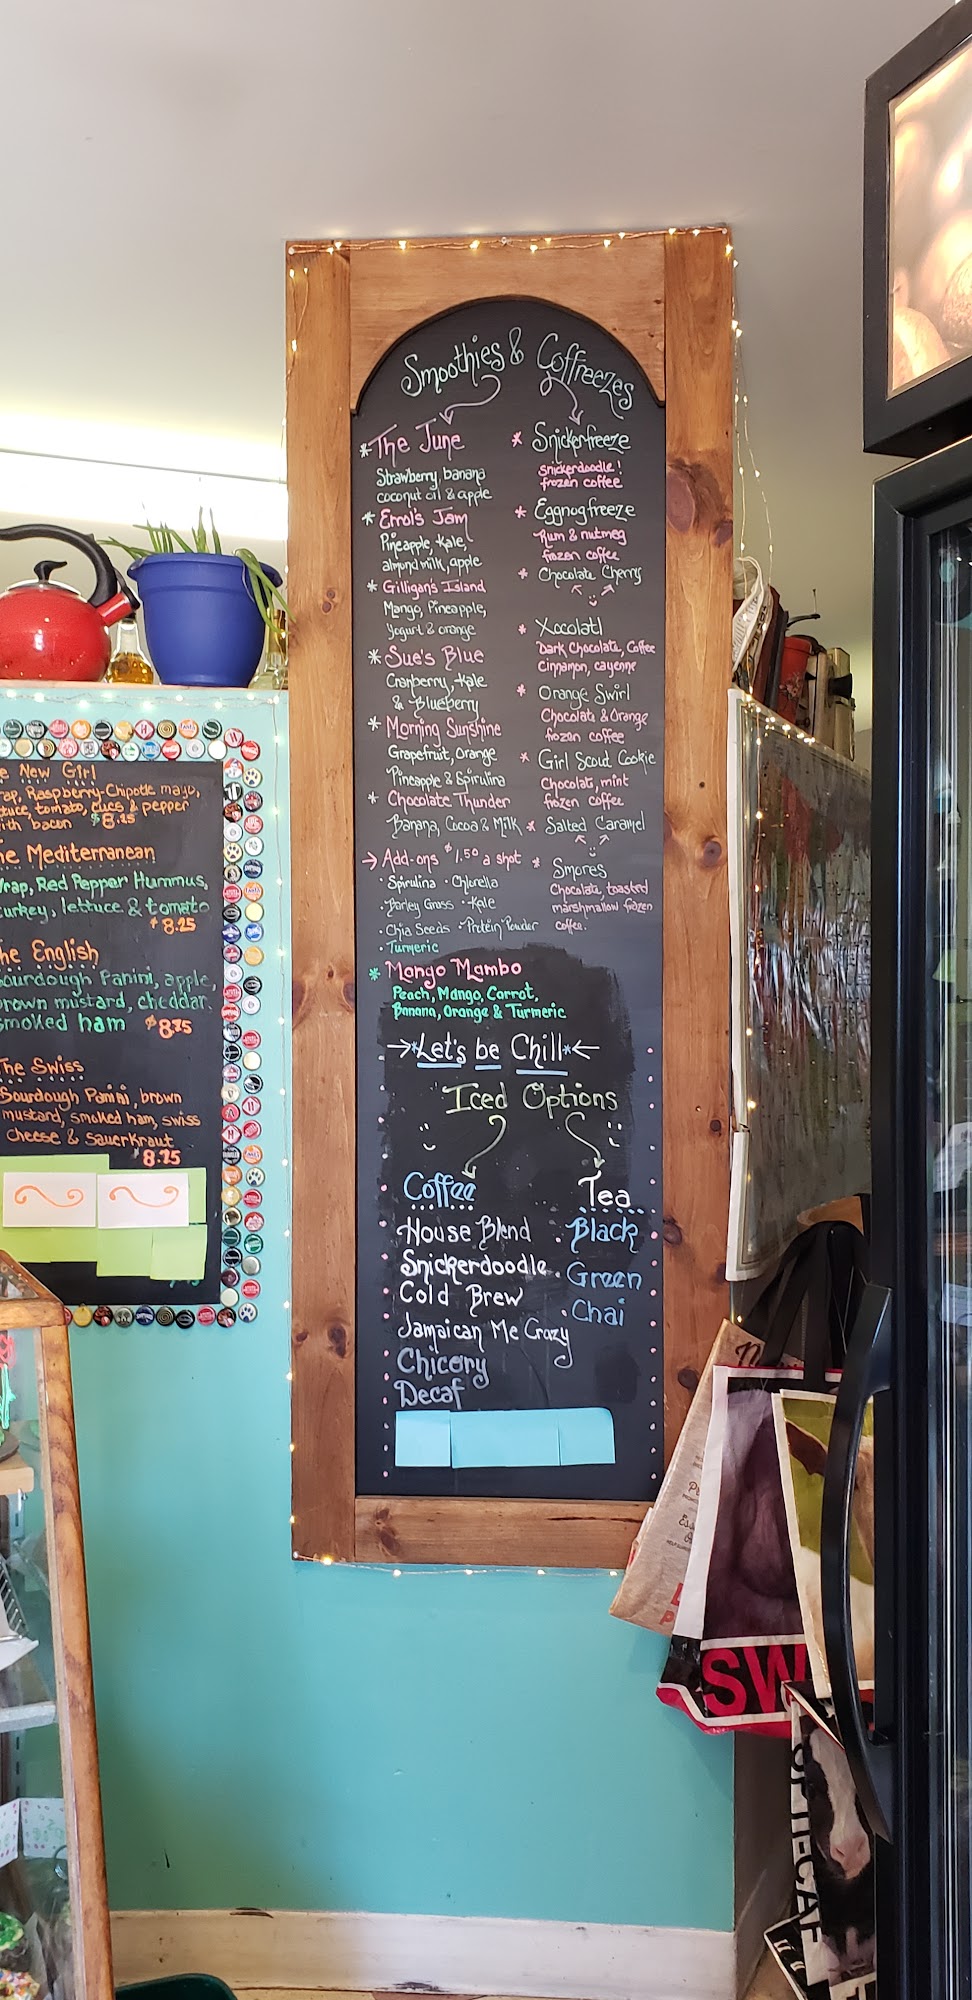 Smoothies & Coffreezes
* The June
Strawberry, banana
coconut oil & apple
* Errol's Jam
Pineapple, Kale,
almond milk, apple
* Gilligan's Island
Mango, Pineapple,
Yogurt & orange
* Sue's Blue
Cranberry, Kale
& Blueberry
* Morning Sunshine
Grapefruit, Orange
Pineapple & Spirulina
* Chocolate Thunder
Banana, Cocoa & Milk
→ Add-ons $1.50 a shot
· Spirulina · Chlorella
· Barley Grass · Kale
· Chia Seeds · Protein Powder
· Turmeric
* Mango Mambo
Peach, Mango, Carrot,
Banana, Orange & Turmeric
* Snickerfreeze
Snickerdoodle!
frozen coffee
* Eggnogfreeze
Rum & nutmeg
frozen coffee
* Chocolate Cherry
* Xocolatl
Dark Chocolate, Coffee
Cinnamon, cayenne
* Orange Swirl
Chocolate & Orange
frozen coffee
* Girl Scout Cookie
Chocolate, mint
frozen coffee
* Salted Caramel
* Smores
Chocolate toasted
marshmallow frozen
coffee.
→*Let's be Chill*←
Iced Options
Coffee
House Blend
Snickerdoodle
Cold Brew
Jamaican Me Crazy
Chicory
Decaf
Tea
· Black
· Green
· Chai
e New Girl
rap, Raspberry-Chipotle mayo,
tuce, tomato, cucs & pepper
ith bacon $8.25
he Mediterranean
Wrap, Red Pepper Hummus,
turkey, lettuce & tomato
$8.25
he English
Sourdough Panini, apple,
brown mustard, cheddar,
smoked ham $8.75
The Swiss
Sourdough Panini, brown
mustard, smoked ham, swiss
cheese & sauerkraut
8.75
SW